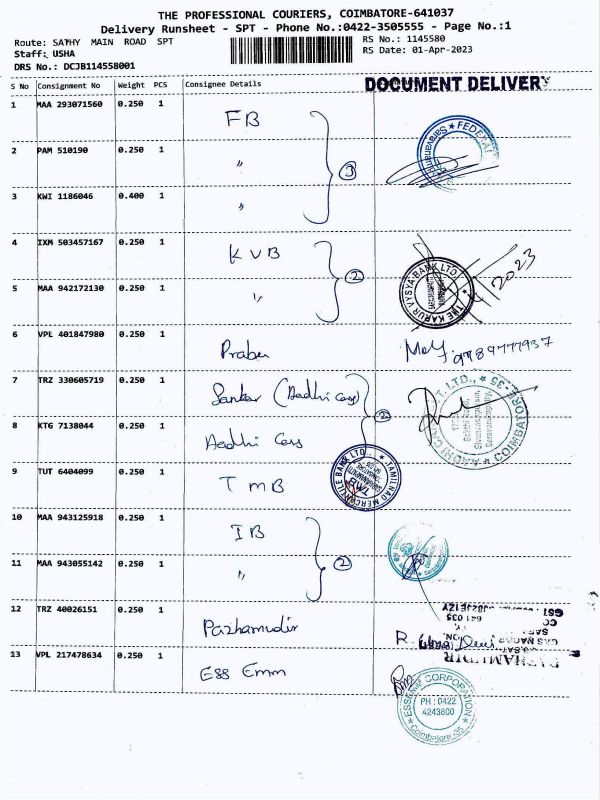 THE PROFESSIONAL COURIERS, COIMBATORE-641037
Delivery Runsheet - SPT - Phone No.:0422-3505555 - Page No.:1
Route: SATHY MAIN ROAD SPT
RS No.: 1145580
Staff: USHA
RS Date: 01-Apr-2023
DRS No.: DCJB114558001
S No Consignment No Weight PCS Consignee Details
DOCUMENT DELIVERY
1 MAA 293071560 0.250 1 FB
FEDERAL
2 PAM 510190 0.250 1 "
3
3 KWI 1186046 0.400 1 "
4 IXM 503457167 0.250 1 KVB
2
THE KARUR VYSYA BANK LTD
2023
5 MAA 942172130 0.250 1 "
6 VPL 401847980 0.250 1 Prabu
9789777937
7 TRZ 330605719 0.250 1 Sankar (Aadhi Cars)
2
COIMBATORE-35
8 KTG 7138044 0.250 1 Aadhi Cars
9 TUT 6404099 0.250 1 TMB
TAMILNAD MERCANTILE BANK LTD.,
10 MAA 943125918 0.250 1 IB
2
11 MAA 943055142 0.250 1 "
12 TRZ 40026151 0.250 1 Pazhamudir
641 035
13 VPL 217478634 0.250 1 Ess Emm
ESSEMM CORPORATION
PH : 0422
4243800
Coimbatore-35